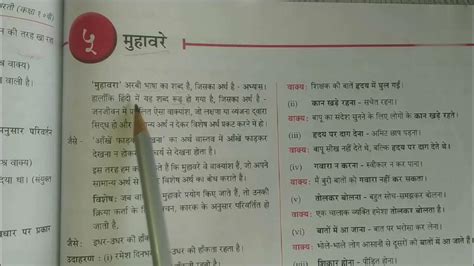 भारती (कक्षा १० वी)
की तरह खा रहा
वाली है।
अनुसार परिवर्तन
है। (संयुक्त
आधार पर प्रकार
५ मुहावरे
'मुहावरा' अरबी भाषा का शब्द है, जिसका अर्थ है - अभ्यास।
हालाँकि हिंदी में यह शब्द रूढ़ हो गया है, जिसका अर्थ है -
जनजीवन में प्रचलित ऐसा वाक्यांश, जो लक्षणा या व्यंजना द्वारा
सिद्ध हो और सामान्य अर्थ न देकर विशेष अर्थ प्रकट करने में हो।
जैसे : 'आँखें फाड़कर देखना' का अर्थ वास्तव में आँखें फाड़कर
देखना न होकर आश्चर्य से देखना होता है।
इस तरह हम कह सकते हैं कि मुहावरे वे वाक्यांश हैं, जो अपने
सामान्य अर्थ से विशेष अर्थ का बोध कराते हैं।
विशेष: जब वाक्य में मुहावरे प्रयोग किए जाते हैं, तो उनकी
क्रिया कर्ता के लिंग, वचन, कारक के अनुसार परिवर्तित हो
जाती है।
जैसे : इधर-उधर की हाँकता रहता है।
उदाहरण : (i) रमेश दिनभर
वाक्य: शिक्षक की बातें हृदय में घुल गईं।
(ii) कान खड़े रहना - सचेत रहना।
वाक्य: बापू का संदेश सुनने के लिए लोगों के कान खड़े रहते थे।
(iii) देखते रह जाना - आश्चर्यचकित होना।
वाक्य:
(iv) गवारा न करना - स्वीकार न कर पाना।
वाक्य: मैं बुरी बातों को गवारा नहीं कर सकता।
(v) तोलकर बोलना - बहुत सोच-समझकर बोलना।
वाक्य: एक चालाक व्यक्ति हमेशा तोलकर बोलता है।
(vi) बातों में आ जाना - बात पर भरोसा कर लेना।
वाक्य: भोले-भाले लोग आसानी से दूसरों की बातों में आ जाते हैं।
शिकार होना - पीड़ित होना।